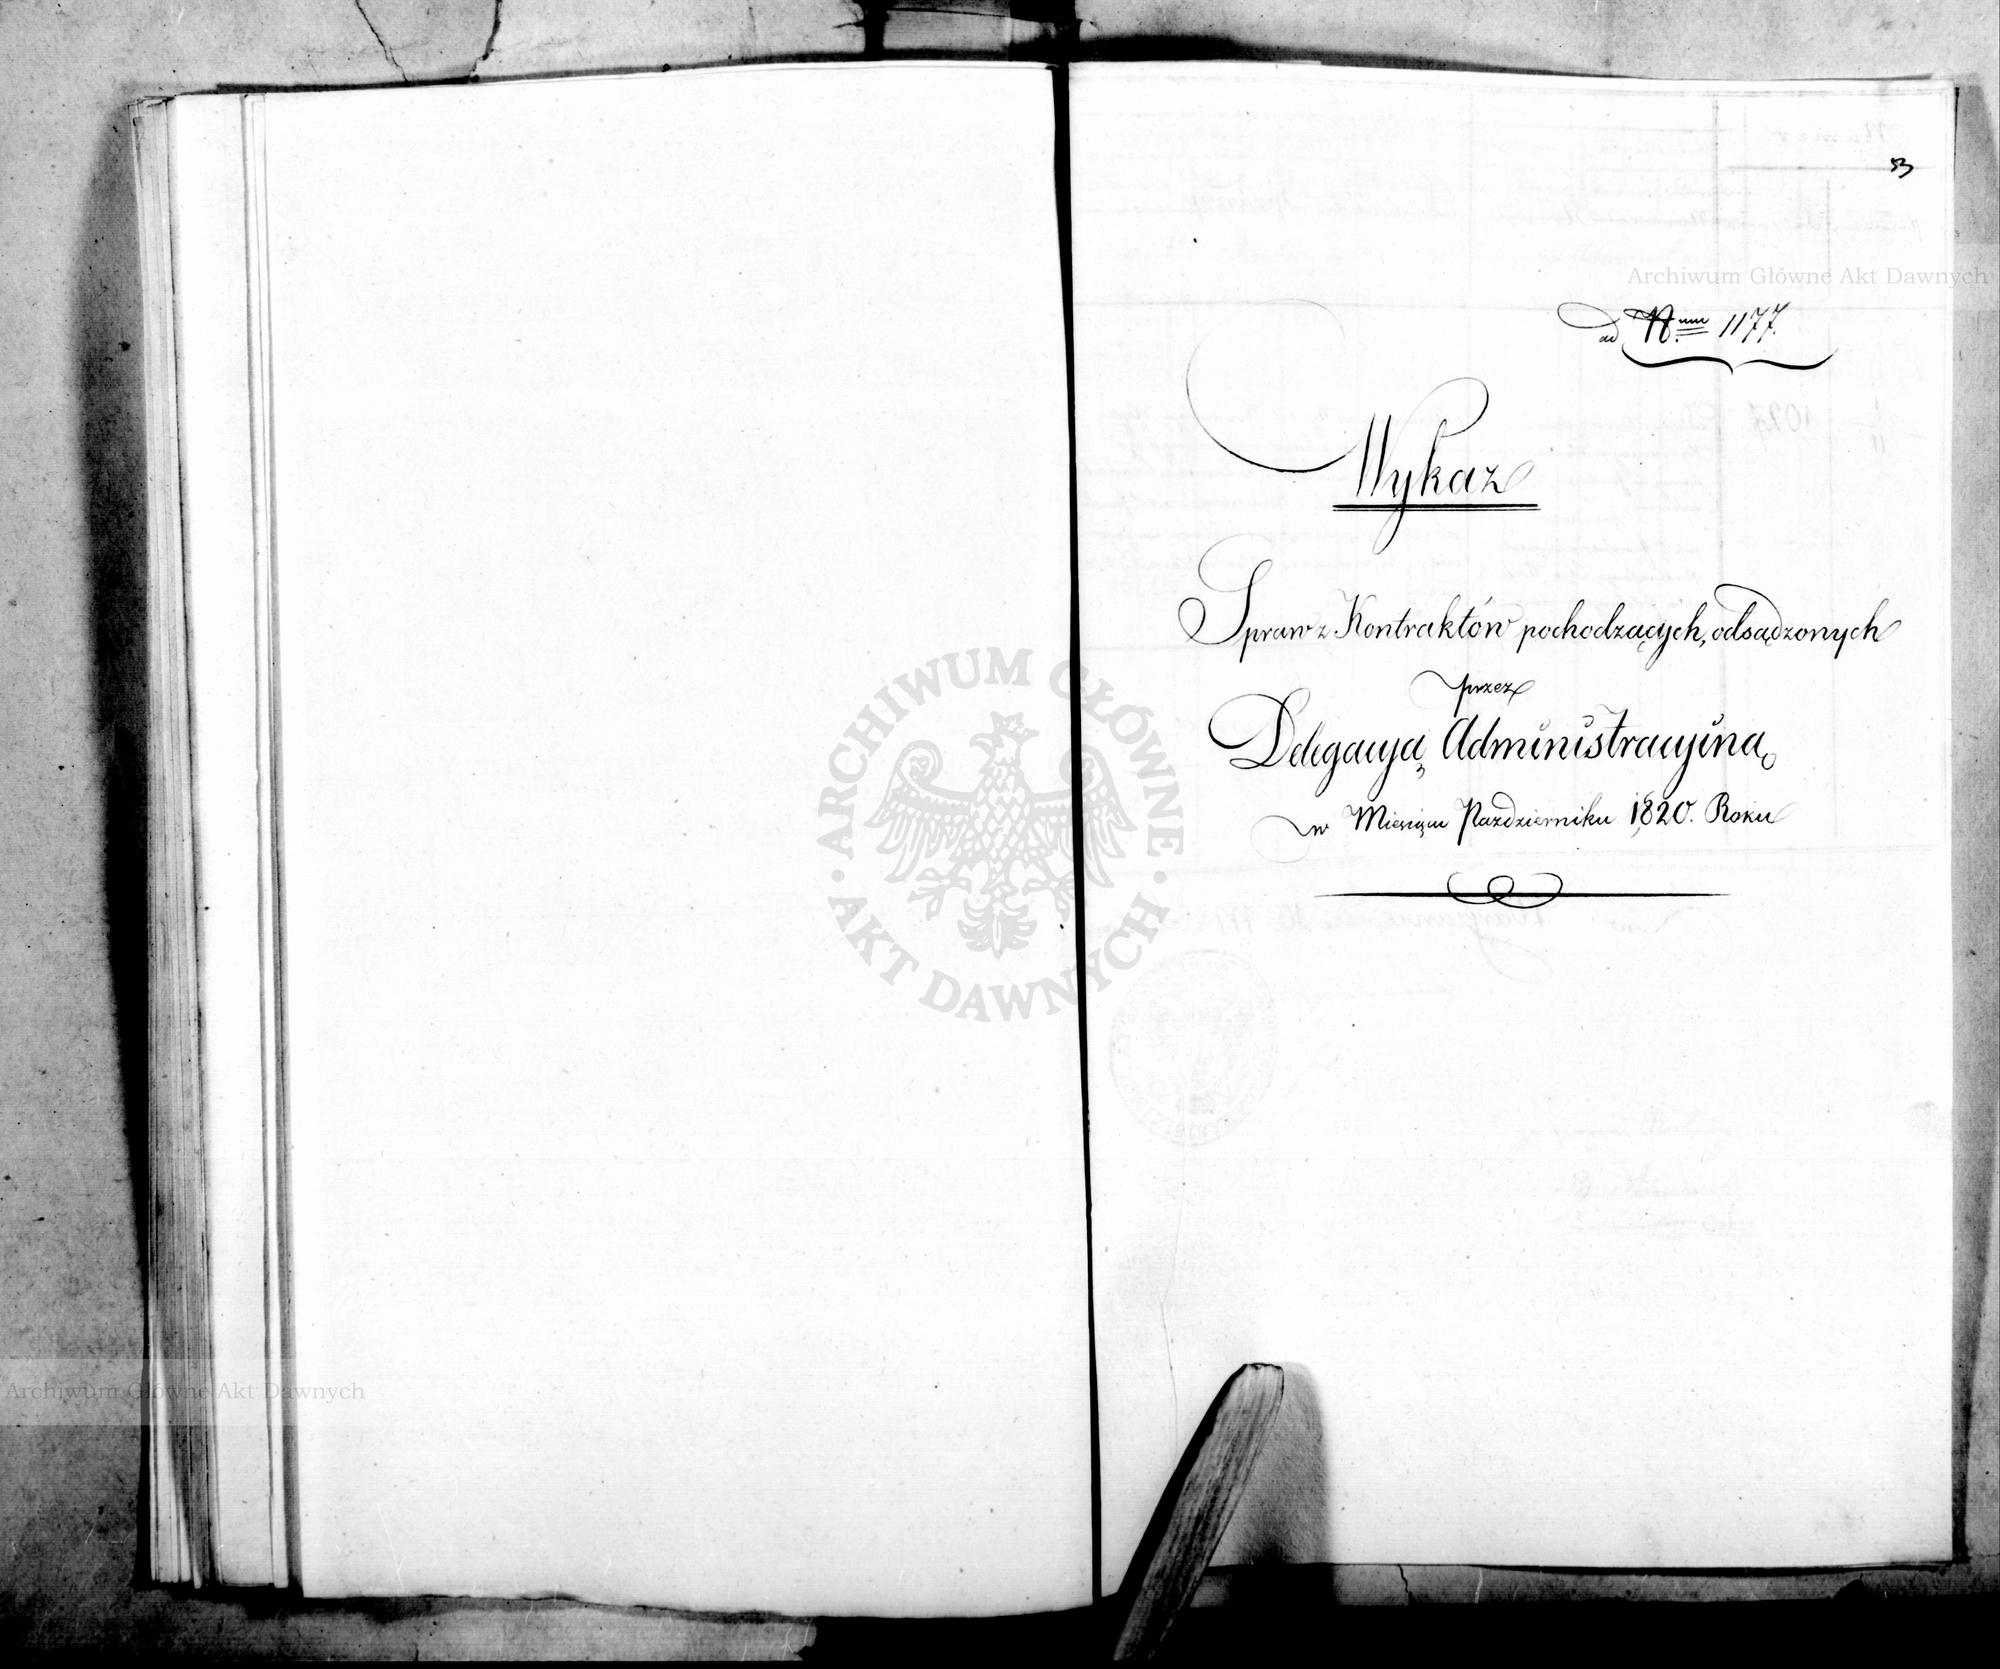 53
Archiwum Główne Akt Dawnych
ad Num 1177.
Wykaz
Spraw z Kontraktów pochodzących, odsądzonych
przez
Delegacyą Administracyiną
w Miesiącu Pazdzierniku 1820. Roku
ARCHIWUM GŁÓWNE
AKT DAWNYCH
Archiwum Główne Akt Dawnych